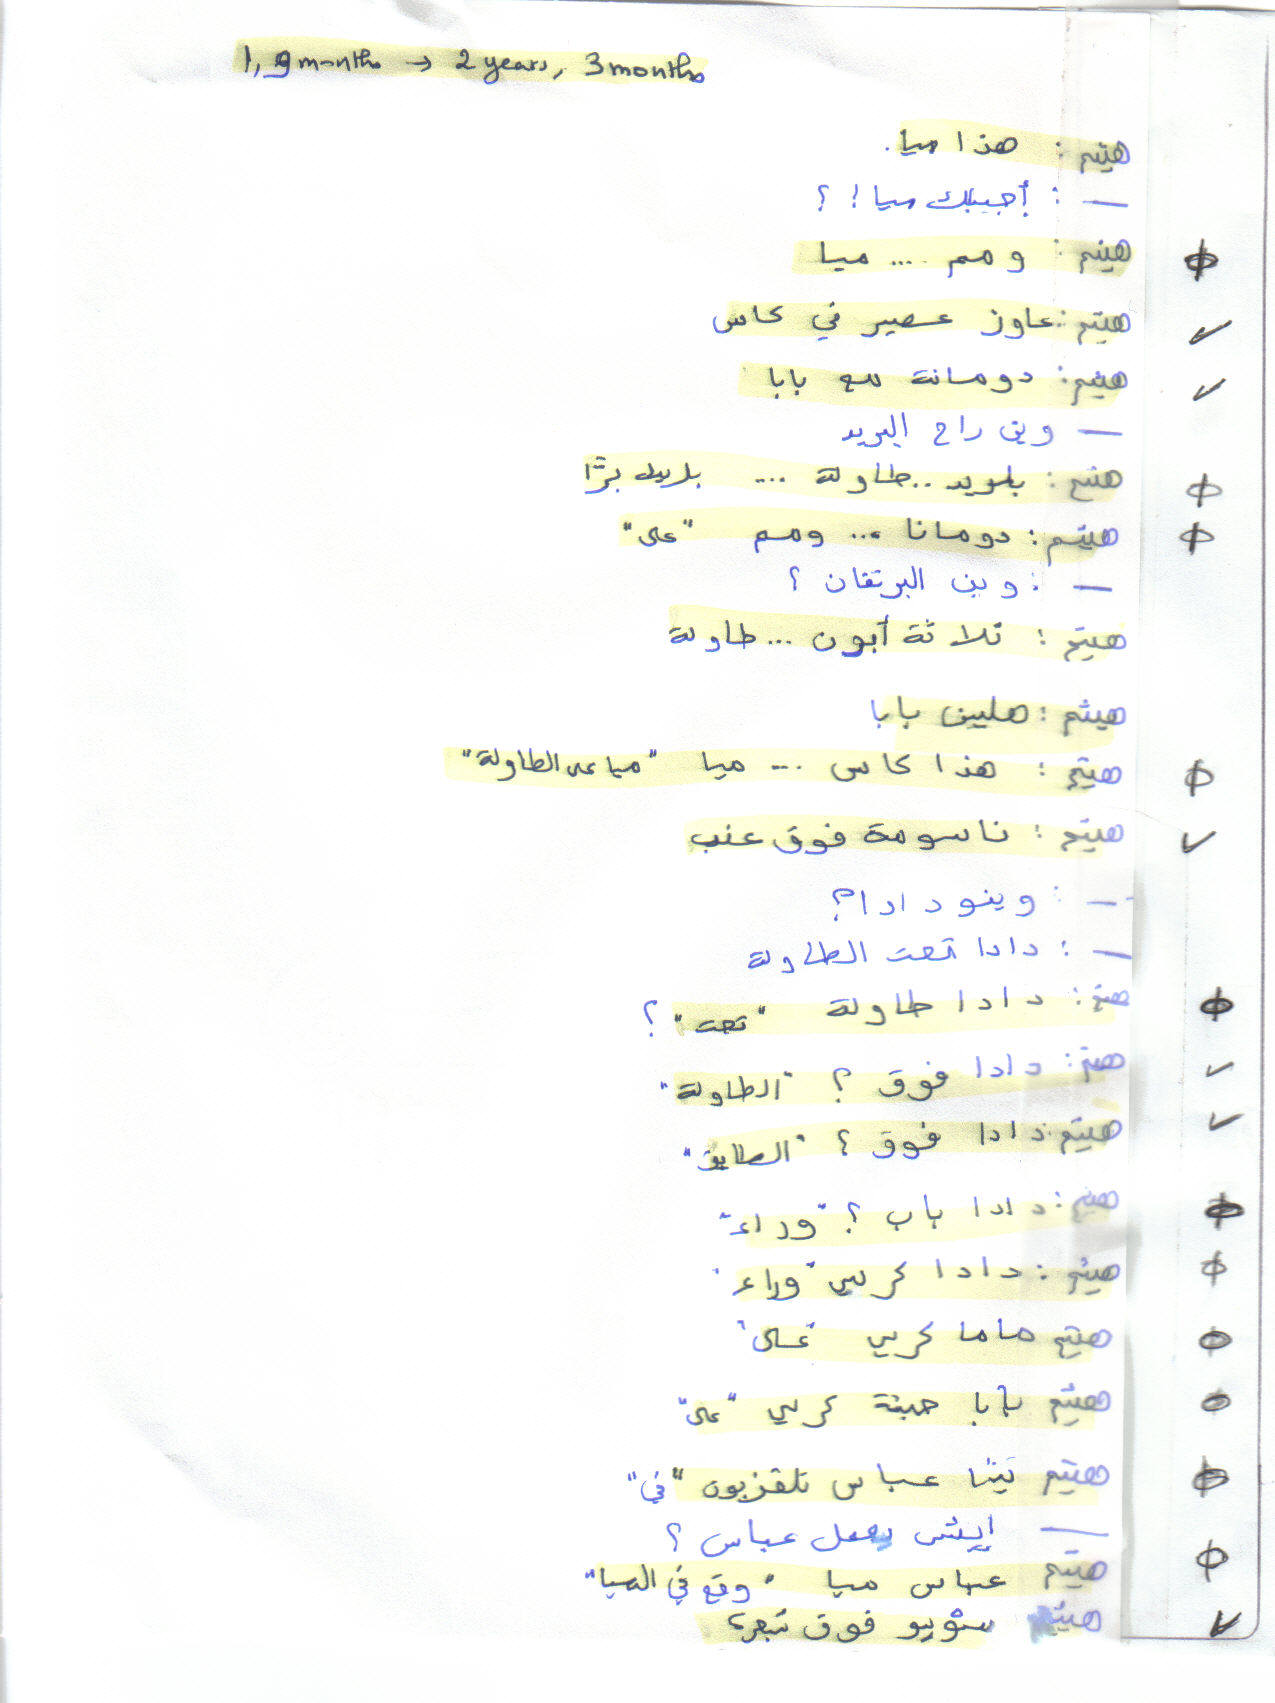 1, 9 months → 2 years, 3 months
هيثم : هذا ميا.
— : أجيبلك ميا ! ؟
هيثم : ومم .... ميا
هيثم : عاوز عصير في كاس
هيثم : دومانة مع بابا
— وين راح البريد
هيثم : بلويد .. طاولة .... برّا
هيثم : دومانا ... ومم "على"
— : وين البرتقان ؟
هيثم : ثلاثة أبون ... طاولة
هيثم : هليين بابا
هيثم : هذا كاس ... ميا "ميا على الطاولة"
هيثم : ناسومة فوق عنب
— : وينو دادا؟
— : دادا تحت الطاولة
هيثم : دادا طاولة "تحت" ؟
هيثم : دادا فوق ؟ "الطاولة"
هيثم : دادا فوق ؟ "الطابق"
هيثم : دادا باب ؟ "وراء"
هيثم : دادا كرسي "وراء"
هيثم ماما كرسي "على"
هيثم بابا كرسي "على"
هيثم عباس تلفزيون "في"
— إيش يعمل عباس ؟
هيثم عباس ميا "وقع في الميا"
هيثم فوق